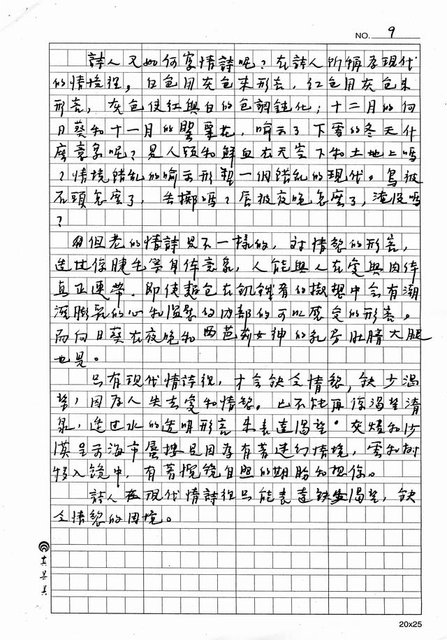 NO. 9
詩人又如何寫情詩呢？在詩人所稱為現代
的情境裡，白色用灰色來形容，紅色用灰色來
形容，灰色使紅與白的色調鈍化；十二月的向
日葵和十一月的罌粟花，喻示了下雪的冬天什
麼意象呢？是人頭和鮮血在天空下和土地上嗎
？情境錯亂的喻示形塑一個錯亂的現代。鳥被
石頭怎麼了，丟擲嗎？唇被夜晚怎麼了，淹沒嗎
？
但老的情詩是不一樣的，對情慾的形容，
迷比你睫毛等身體意象，人能與人在愛與肉体
真正連帶。即使麵包在飢餓者的擬想中会有潮
濕膨脹的心和温柔的内部的可以感受的形容。
而向日葵在夜晚和西芭莉女神的乳房肚臍大腿
也是。
只有現代情詩裡，才会缺乏情慾，缺少渴
望，因為人失去愛和情慾。也不能再像渴望清
泉，迷过水的透明形容来表達渴望。突燈和沙
漠呈示海市蜃樓是因為有著迷幻情境，雲和樹
移入鏡中，有著攬鏡自照的期盼和想像。
詩人在現代情詩裡只能表達缺少渴望，缺
乏情慾的困境。
20x25